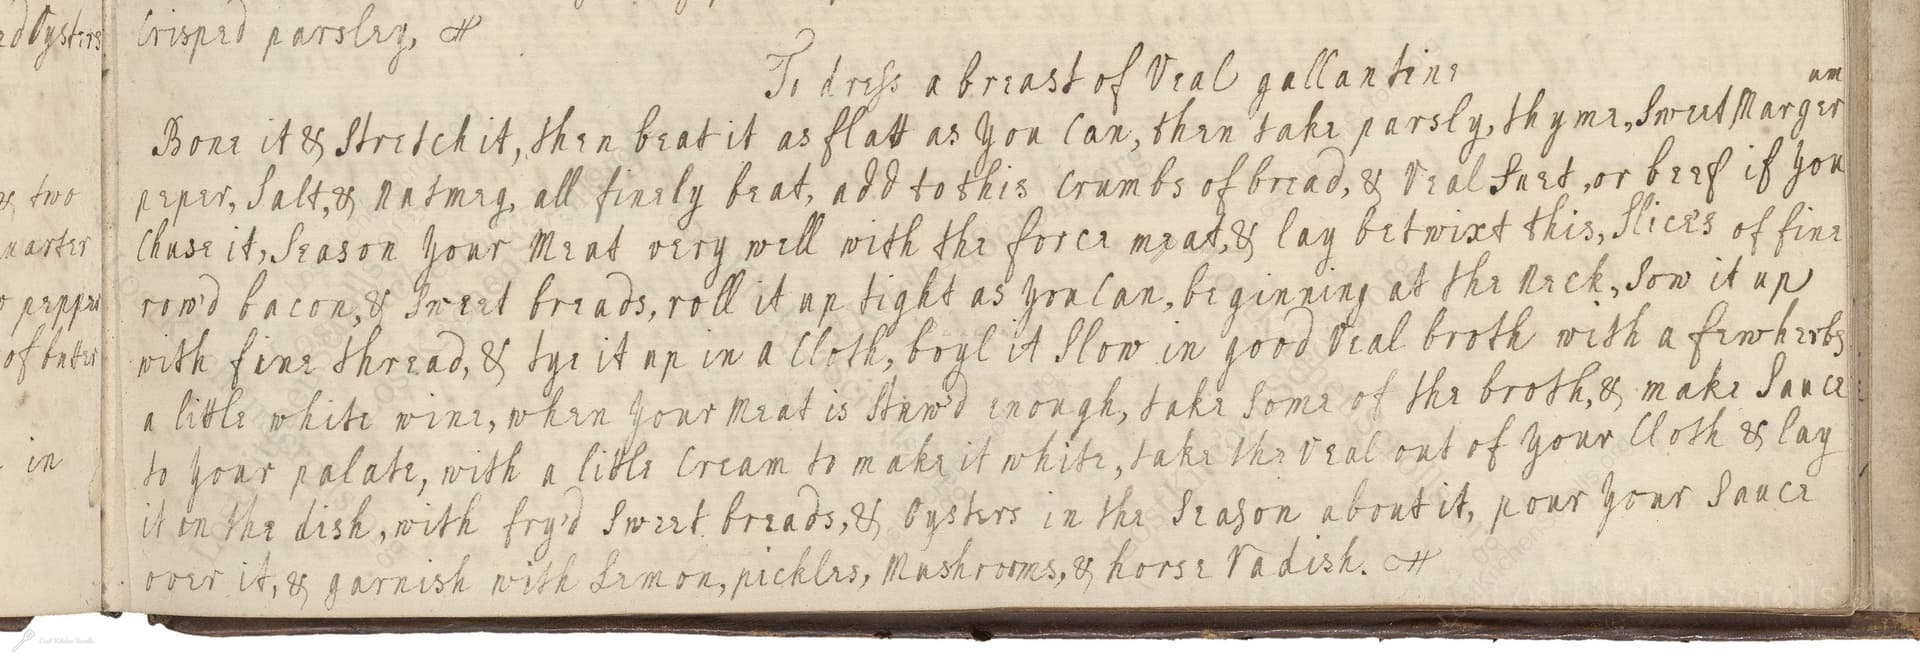 ed Oysters
& two
uarter
o pepper
of butter
in
Crisped parsley,
To dress a breast of Veal gallantine
Bone it & Stretch it, then beat it as flatt as you Can, then take parsly, thyme, Sweet Margerum
peper, Salt, & Nutmeg, all finely beat, add to this Crumbs of bread, & Veal Suet, or beef if you
Chuse it, Season your Meat very well with the force meat, & lay betwixt this, Slices of fine
row'd bacon, & Sweet breads, roll it up tight as you Can, beginning at the Neck, Sow it up
with fine thread, & tye it up in a Cloth, boyl it Slow in good Veal broth with a few herbs
a little white wine, when your Meat is Stuw'd enough, take Some of the broth, & make Sauce
to your palate, with a little Cream to make it white, take the Veal out of your Cloth & lay
it on the dish, with fry'd Sweet breads, & Oysters in the Season about it, pour your Sauce
over it, & garnish with Lemon, pickles, Mushrooms, & horse Radish.
Lost Kitchen Scrolls